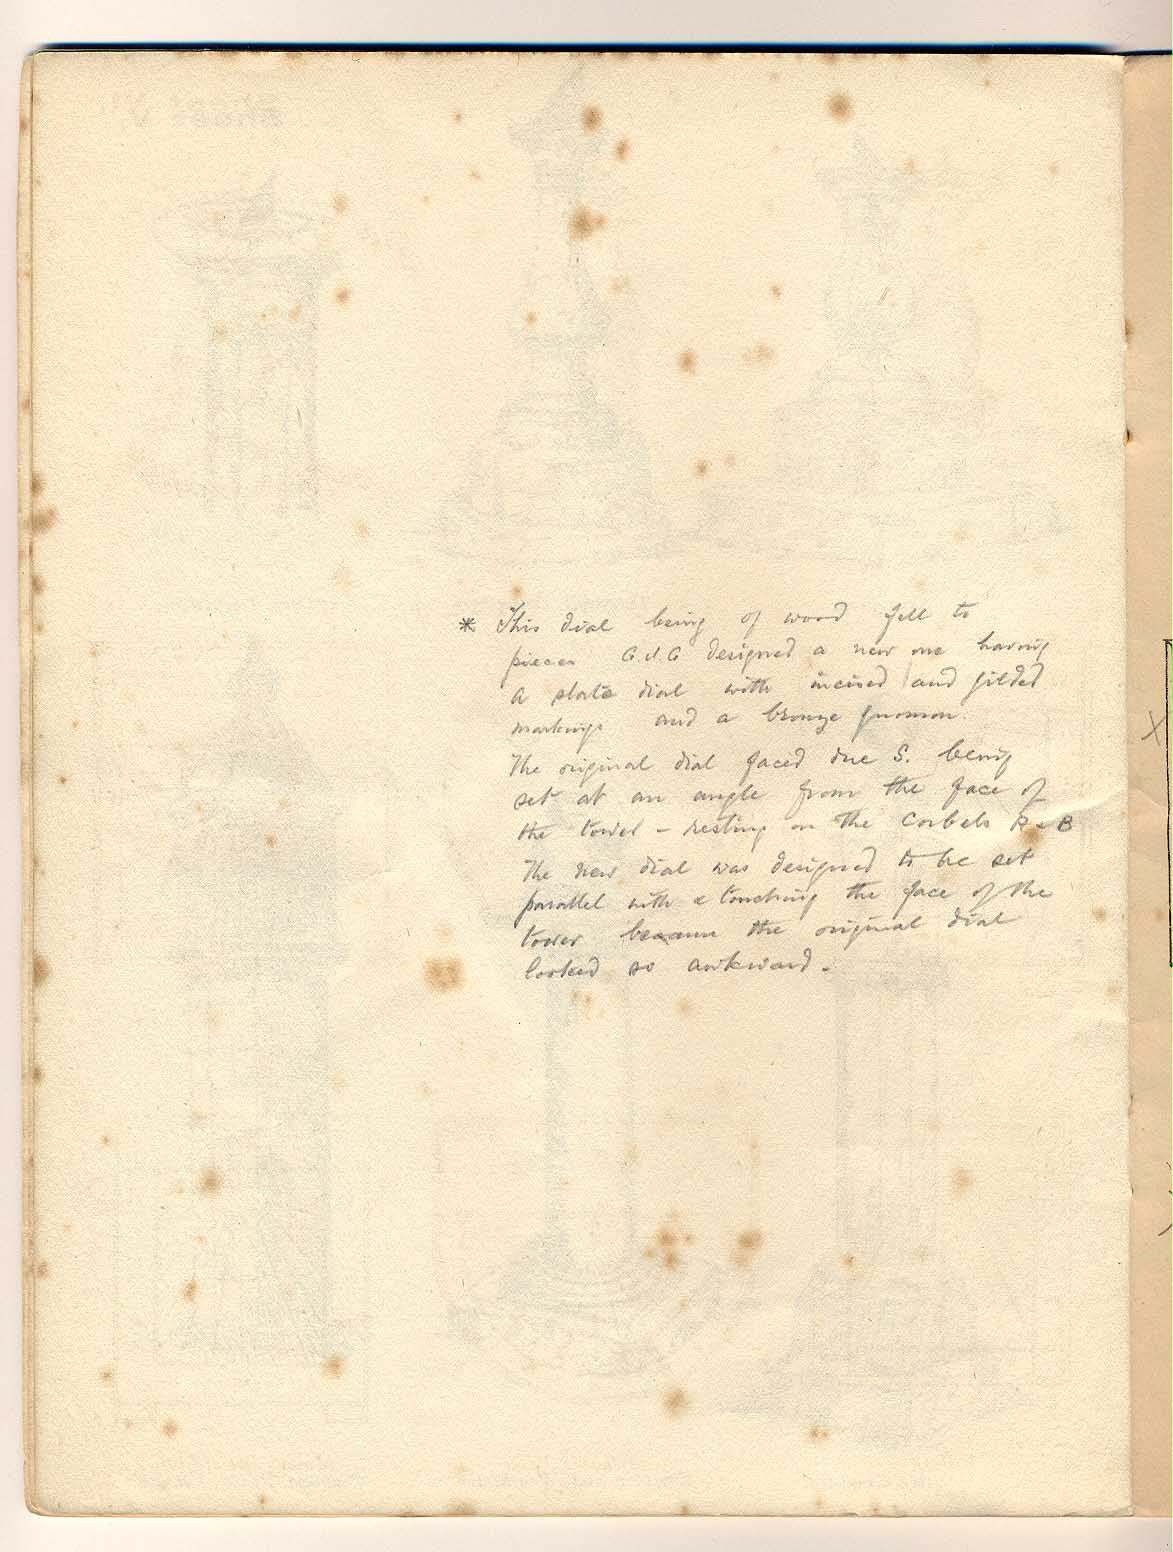 * This dial being of wood fell to
pieces G.J.G designed a new one having
a slate dial with incised and gilded
markings and a bronze gnomon.
The original dial faced due S. being
set at an angle from the face of
the tower – resting on the corbels A & B
The new dial was designed to be set
parallel with & touching the face of the
tower because the original dial
looked so awkward.